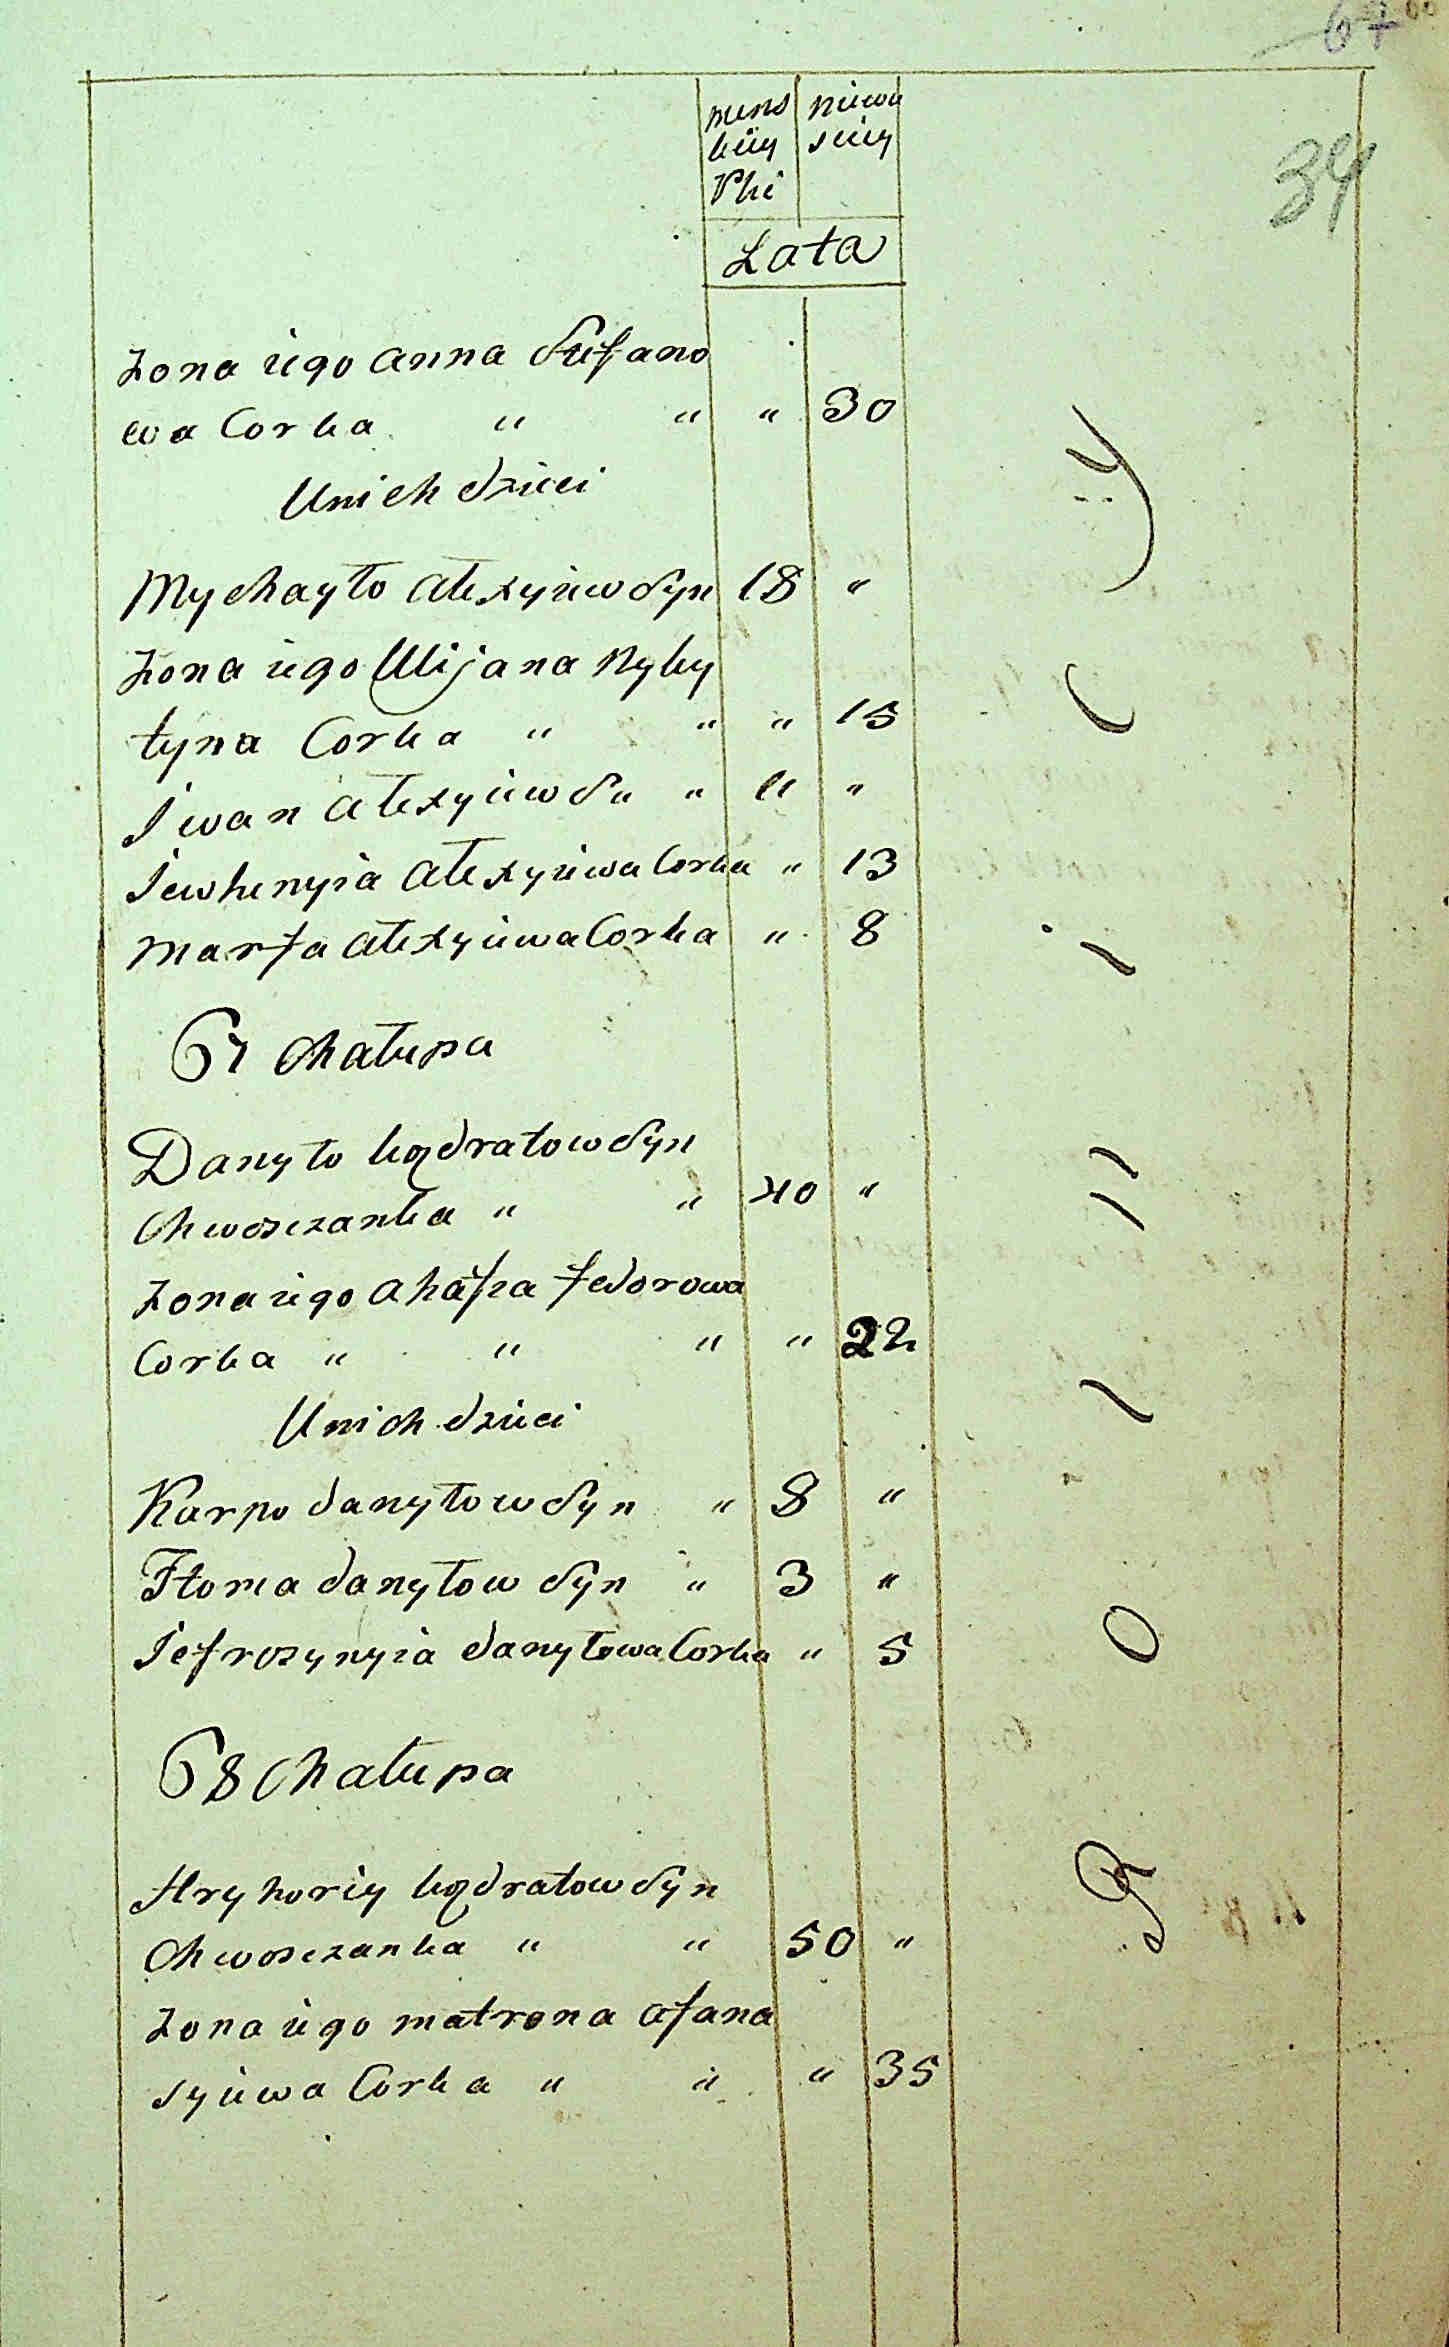 67
39
mens niewa
kiiy sciey
Plci
Lata
Zona iego anna Stefano
wa Corka " " " 30
Unich dzieci
Mychayło alexyiew Syn 18 "
Zona iego Ulijana Nyky
tyna Corka " " " 15
Iwan alexyiew S " " 11 "
Iewhenyia alexyiewa Corka " 13
Marfa alexyiewa Corka " 8
67 Chałupa
Danyło kądratow Syn
Chwosczanka " " 40 "
Zona iego ahafia fedorowa
Corka " " " " 22
Unich dzieci
Karpo danyłow Syn " 8 "
Floma danyłow Syn " 3 "
Iefrozynyia danyłowa Corka " 5
68 Chałupa
Hryhoriy kądratow Syn
Chwosczanka " " 50 "
Zona iego matrona afana
syiewa Corka " " " 35